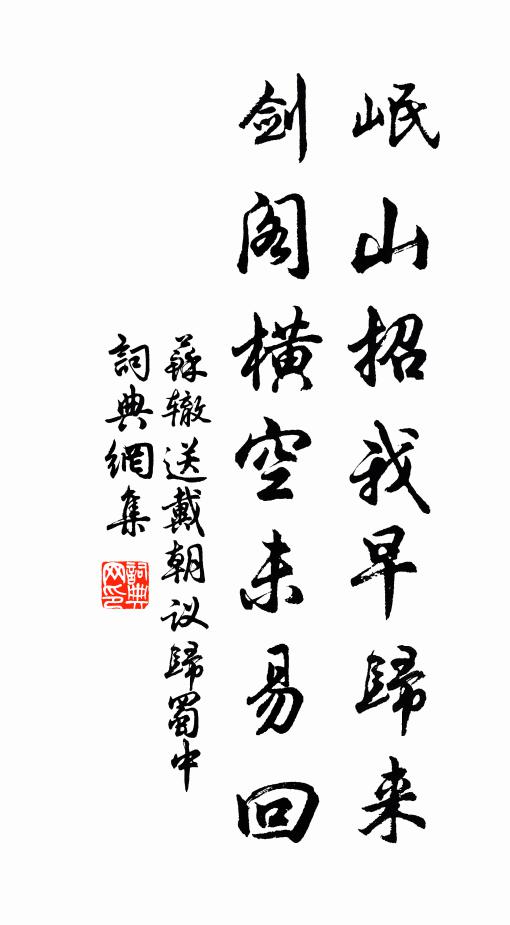 岷山招我早歸来
剑阁橫空未易回
蘇辙送戴朝议歸蜀中
詞典網集
詞典网印